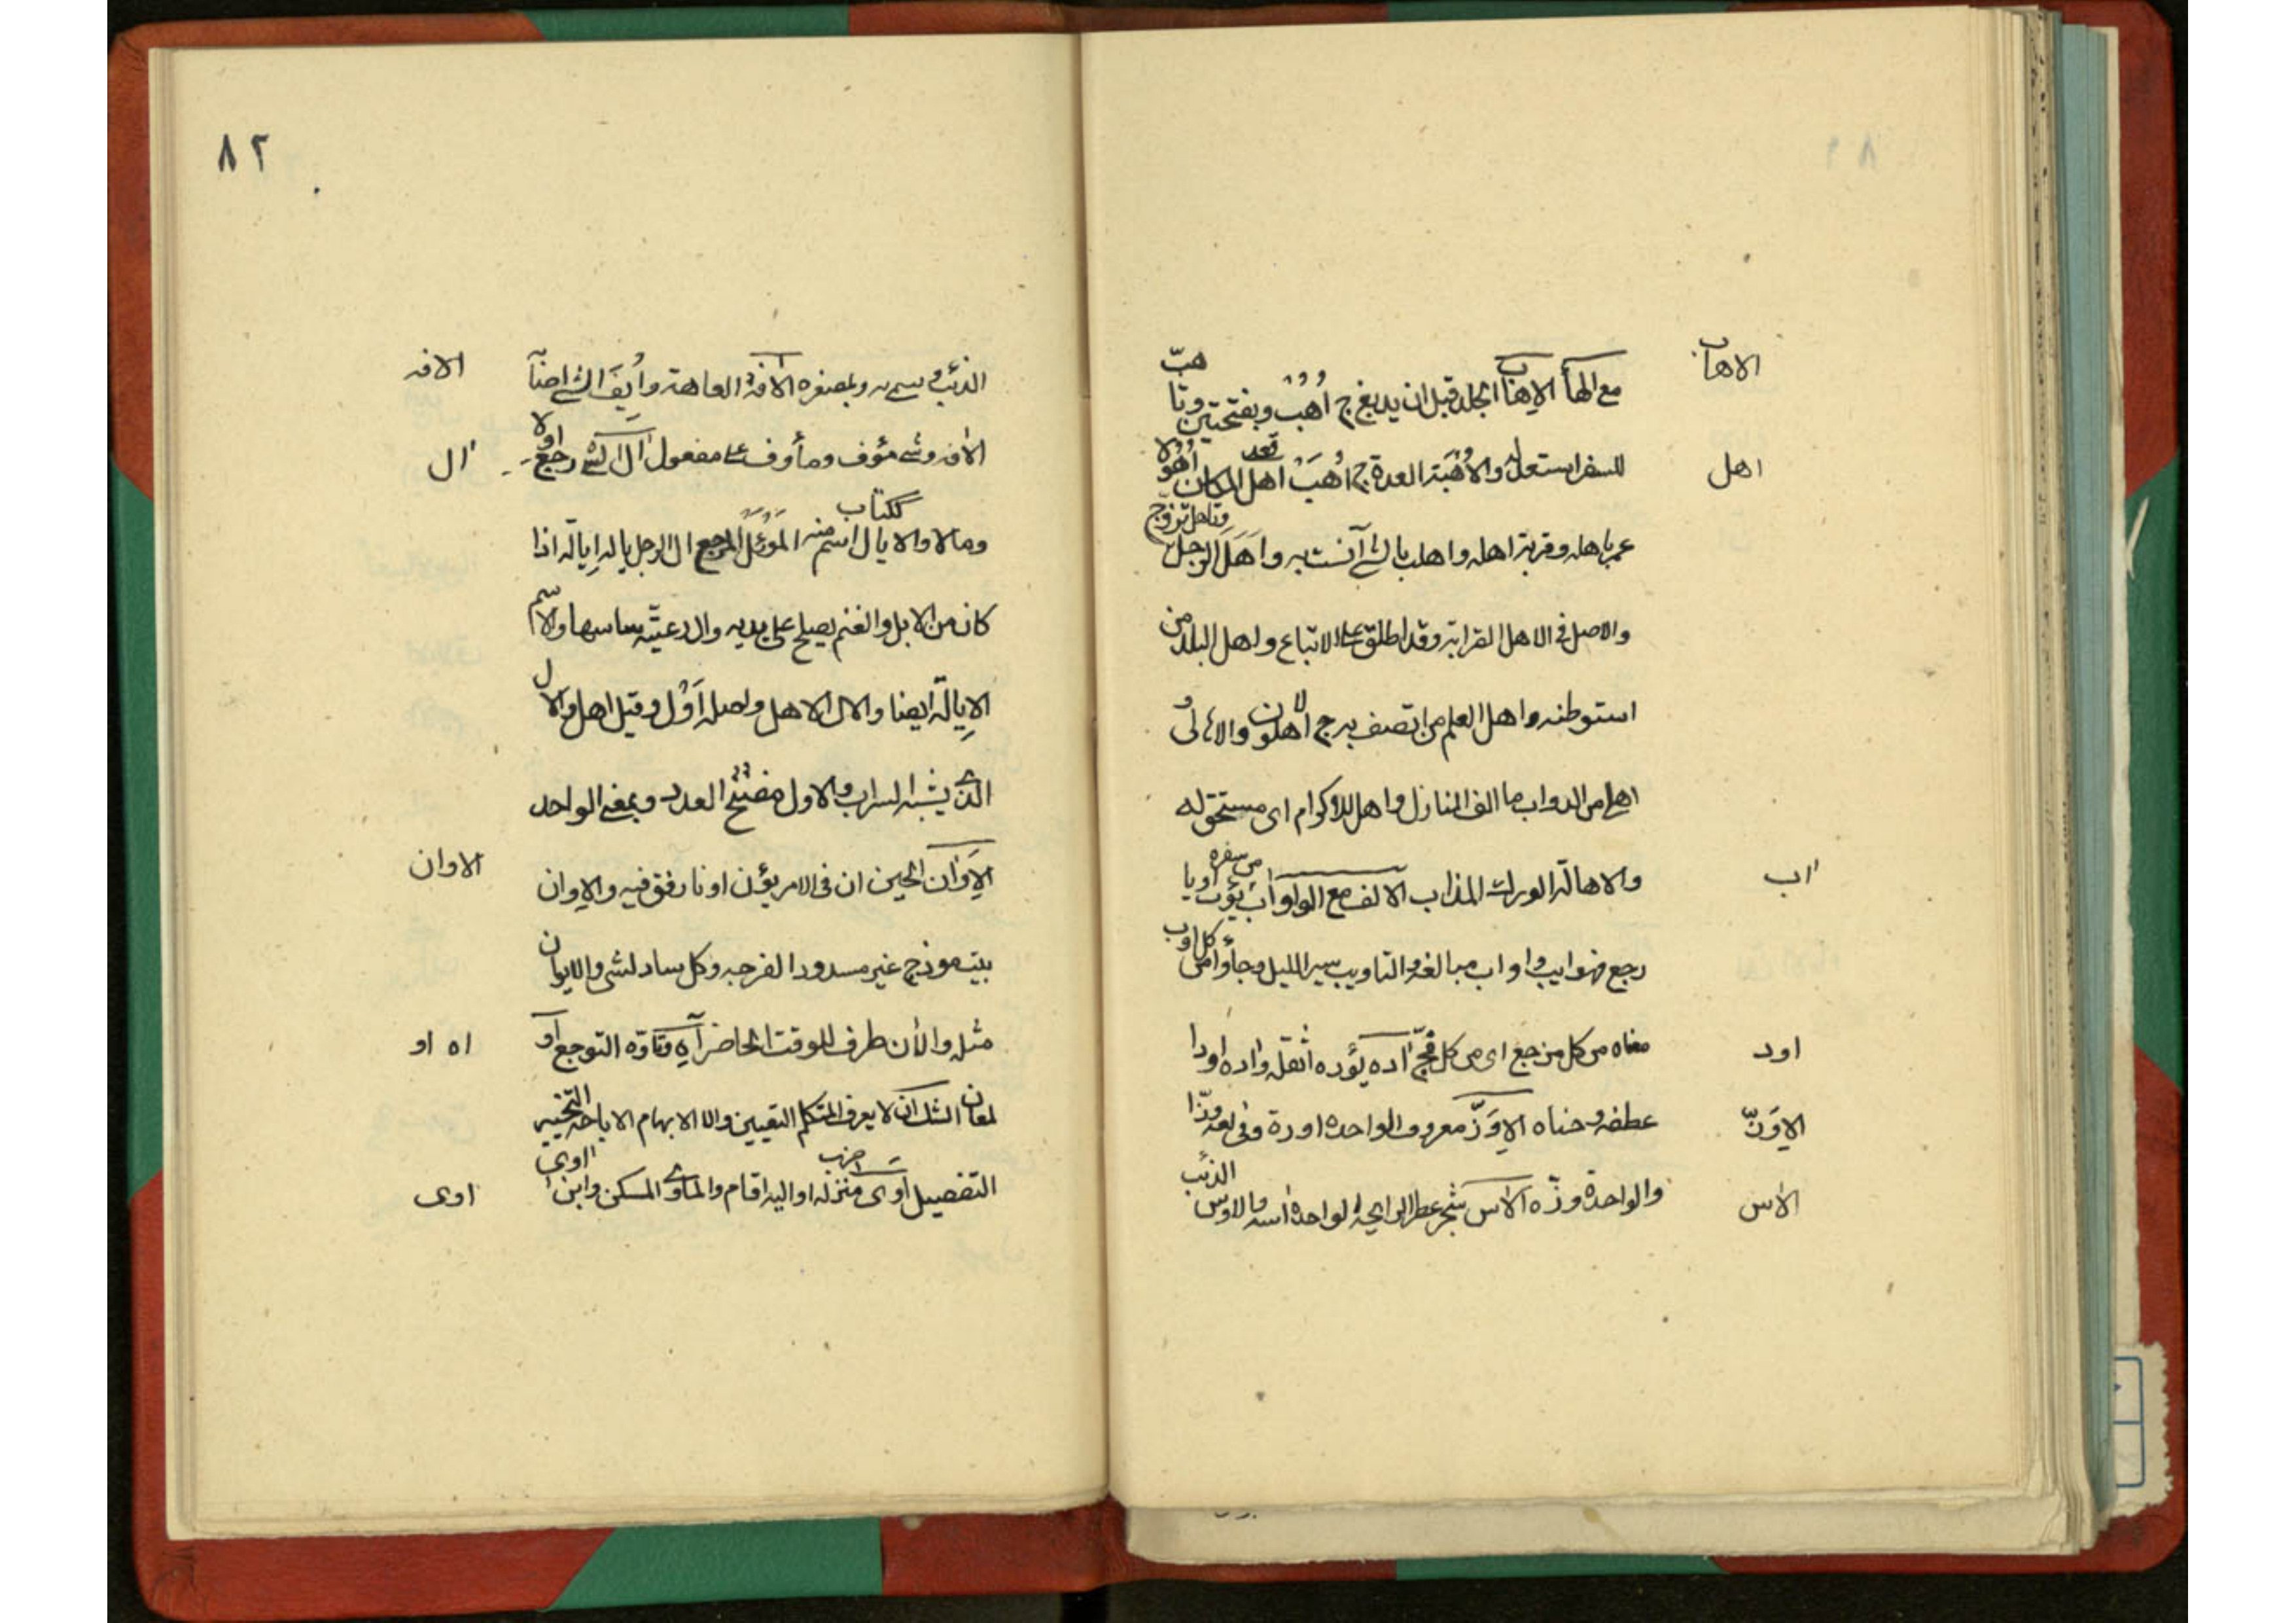 الاهاب
مع الهأ الاهاب الجلد قبل ان يدبغ ج أُهُب وبفتحتين وتاهبّ
اهل
للسفر استعد له والأُهْبَة العدة ج أُهَبْ اهل المكان اُهُولا قعد
عمر باهله وقرية اهله واهلت بالشئ آنست به واَهَلَ الرجل وتاهل تزوّج
والاصل فى الاهل القرابة وقد اطلق على الاتباع واهل البلد من
استوطنه واهل العلم من اتصف به ج اهلون والاهالى و
اهلى من الدواب ما الف المنازل واهل للاكرام اى مستحق له
اب
والاهالة الودك المذاب الالف مع الواو آب يؤب اوبا من سفره
رجع فهو ايب واواب مبالغه والتاويب سير الليل وجأوا من كل اوب
اود
معناه من كل مرجع اى من كل فجّ آده يؤده اثقله واده اودا
الاِوَزّ
عطفه وحناه الاِوَزّ معروف الواحدة اوزة وفى لغه وزّا
الاس
والواحدة وزّه الآس شجر عطر الرايحة الواحدة اسه والاوس الذئب
٨٢
الافه
الذئب وسمى به وبمصغره الافة العاهة وأُيِفَ الشئ اصابه
ال
الافه وشئ مؤف ومأوف على مفعول آل الشئ رجع اولا
ومالا والايال ككتاب اسم منه المَوْئل المرجع ال الرجل ماله اِيالة اذا
كان من الابل والغنم يصلح على يديه وال رعيّته ساسها والاسم
الاِيالة ايضا والال الاهل واصله اَوَل وقيل اهل والال
الذى يشبه السراب والاول مفتتح العدد وبمعنى الواحد
الاوان
الاَِوَان الحين ان فى الامر يؤن اونا رفق فيه والاِوان
بيت موذج غير مسدود الفرجه وكل ساد لشى والايوان
اه او
مثله والآن ظرف للوقت الحاضر آهِ وتاوّه التوجع اَو
لمعان الشك ان لا يعرف المتكلم التعيين والا الابهام الاباحه التخيير
اوى
التفصيل اَوى منزله او اليه اقام والمأوى المسكن وابن اوى